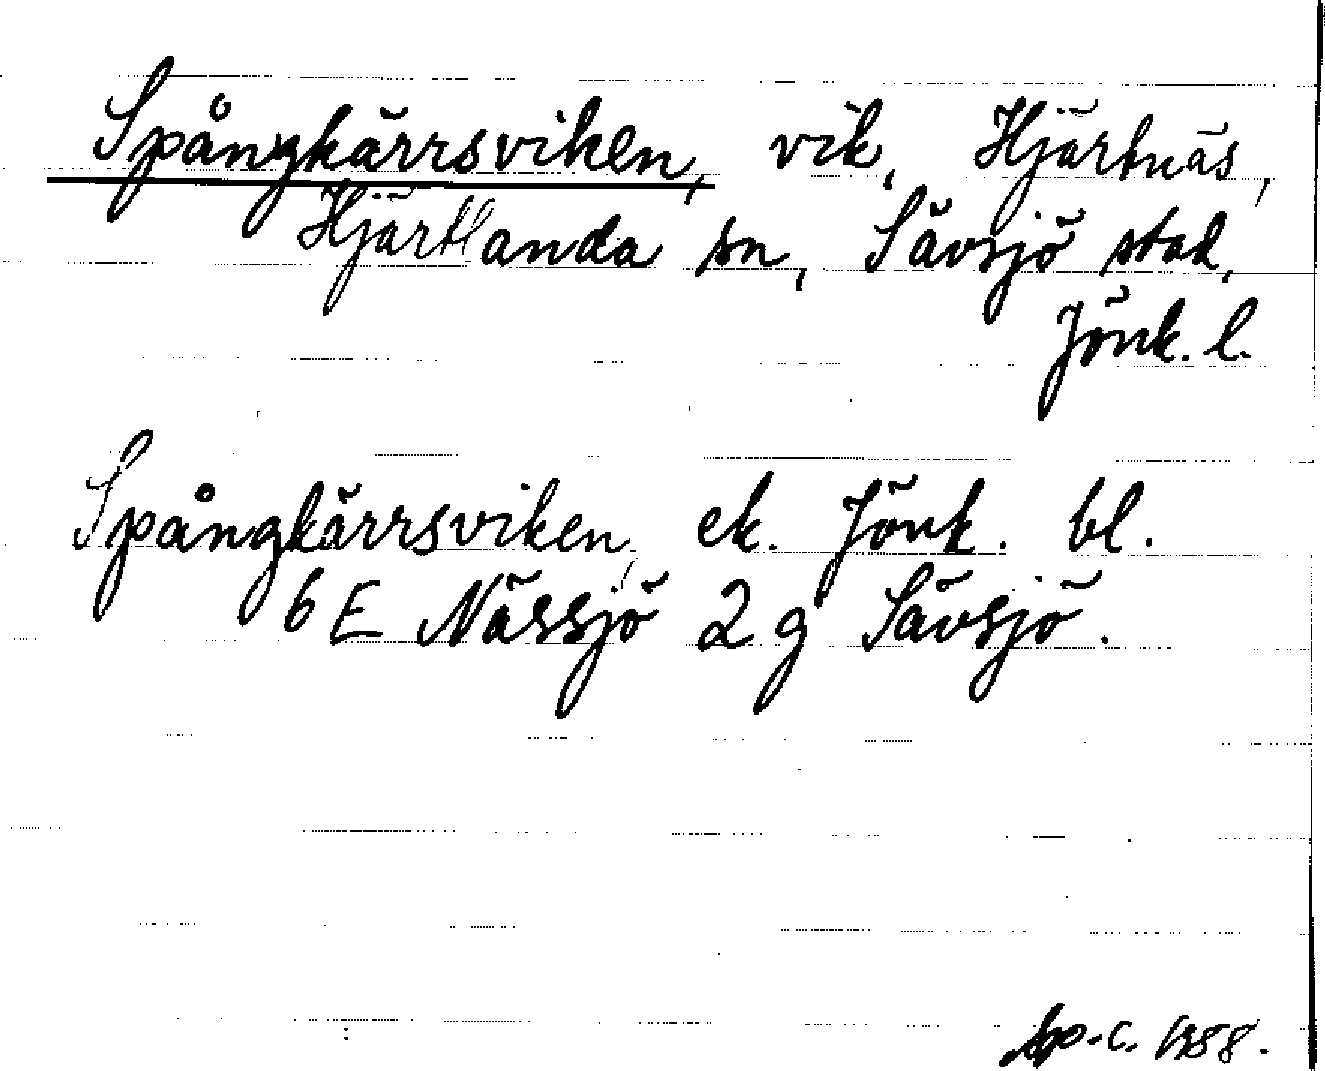 Spångkärrsviken, vik, Hjärtnäs,
Hjärtlanda sn, Sävsjö stad,
Jönk. l.
Spångkärrsviken, ek. Jönk. bl.
6 E Nässjö 2 g Sävsjö.
1988.